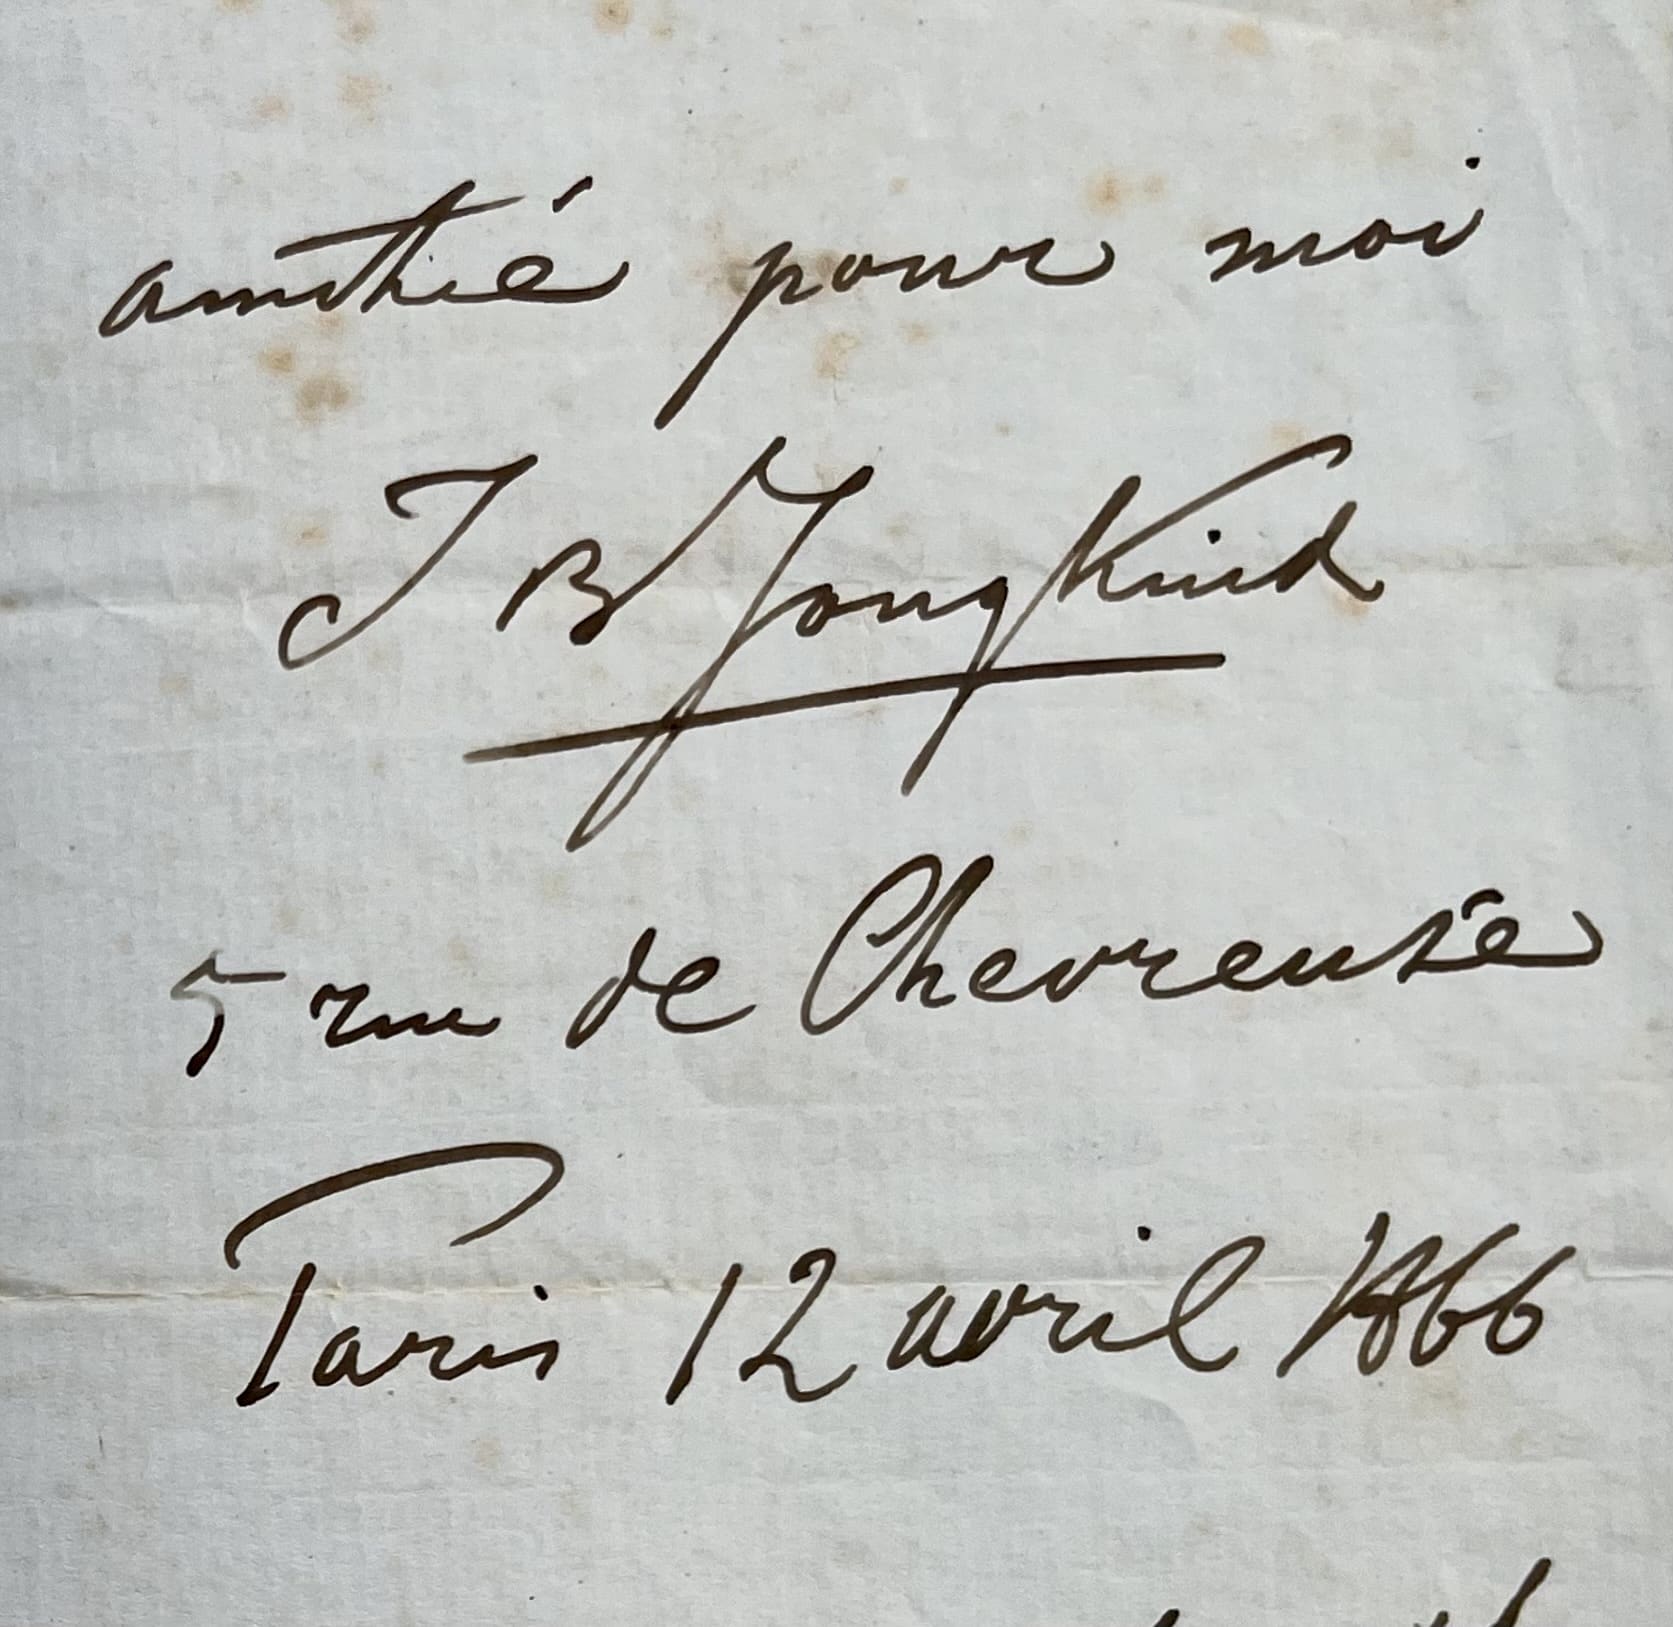 amithié pour moi
J B Jongkind
5 rue de Chevreuse
Paris 12 avril 1866